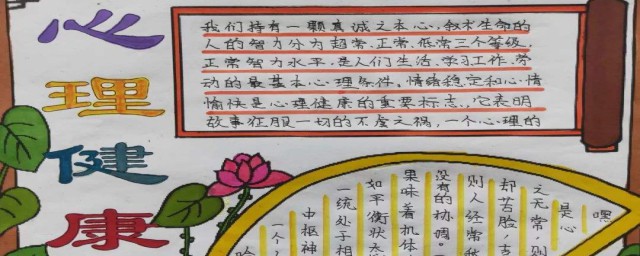 心理健康
我们持有一颗真诚之本心,叙术生命的
人的智力分为超常、正常、低常三个等级,
正常智力水平,是人们生活、学习工作、劳
动的最基本心理条件。情绪稳定和心情
愉快是心理健康的重要标志。,它表明
故事征服一切的不虞之祸,一个心理的
嘿
是心
之无常,则
却苦脸,吉
别人经常愁
没有的协调。
果味着机体
如平衡状态
一统处于相
中枢神
一个人